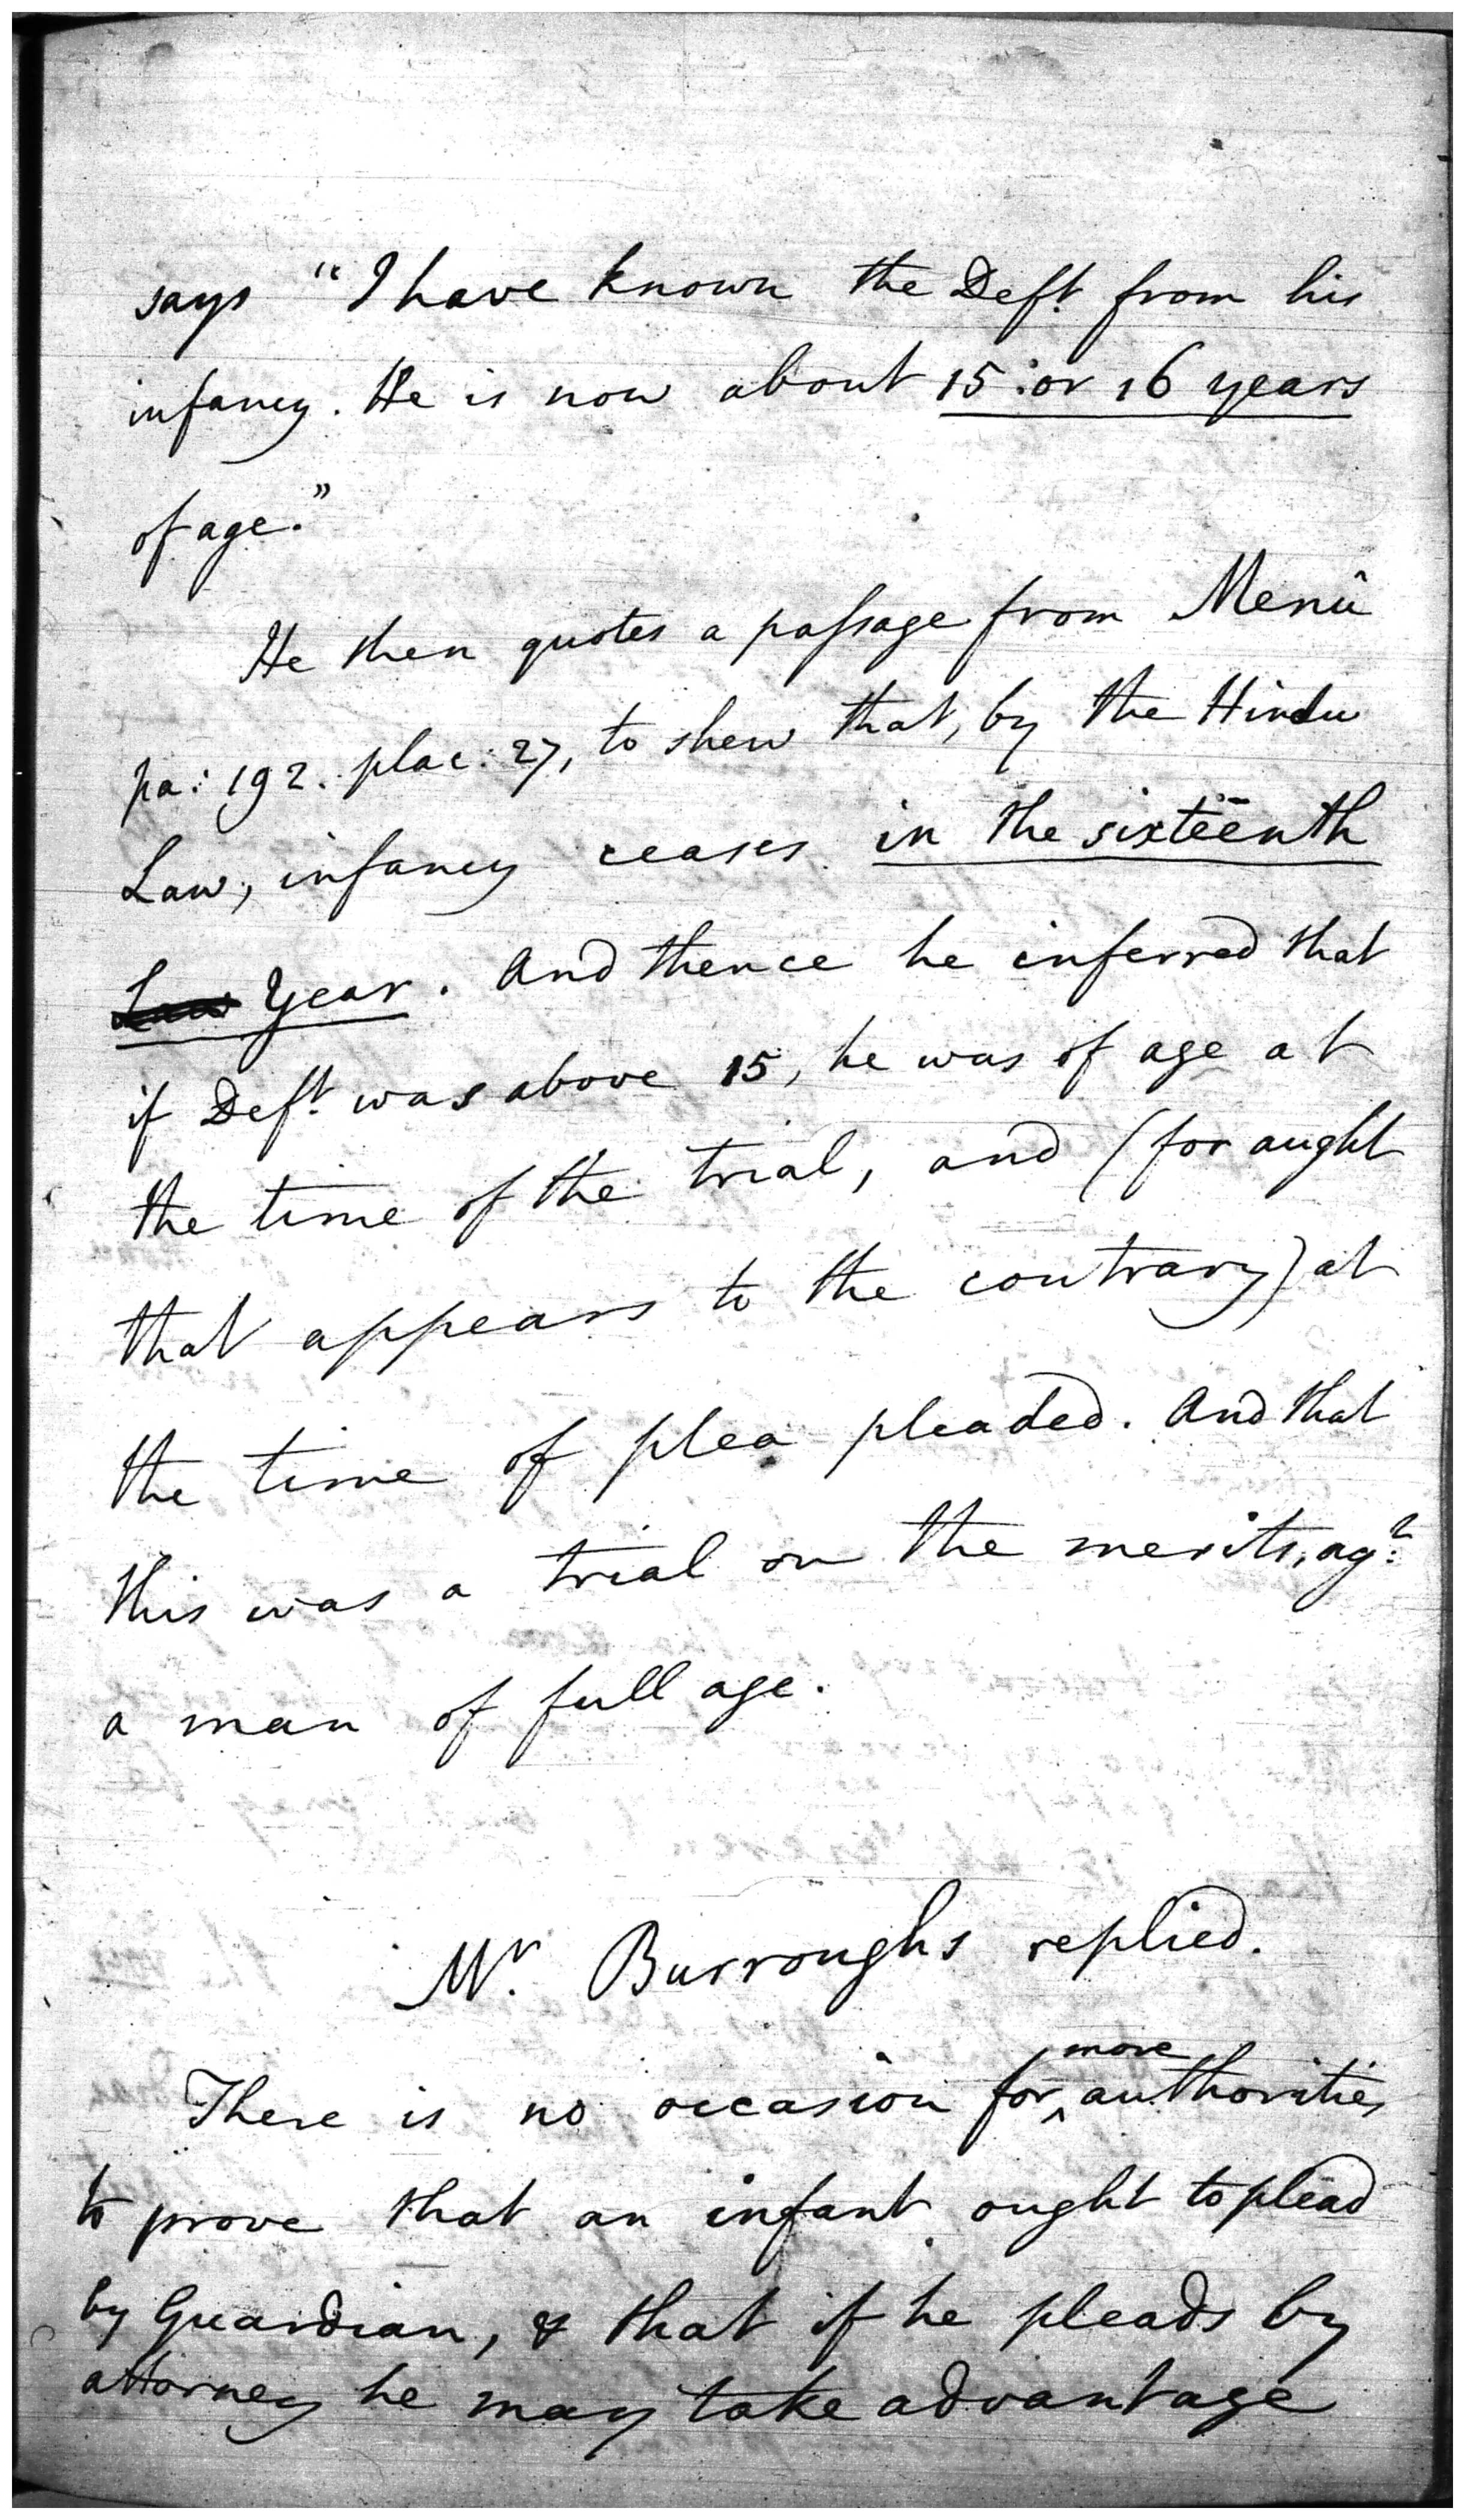 says "I have known the Deft. from his
infancy. He is now about 15: or 16 years
of age."
He then quotes a passage from Menû
pa: 192. plac: 27, to shew that, by the Hindu
Law, infancy ceases in the sixteenth
Law Year. And thence he inferred that
if Deft. was above 15, he was of age at
the time of the trial, and (for aught
that appears to the contrary) at
the time of plea pleaded. And that
this was a trial on the merits, agt.
a man of full age.
Mr. Burroughs replied.
There is no occasion for more authorities
to prove that an infant ought to plead
by Guardian, & that if he pleads by
attorney he may take advantage